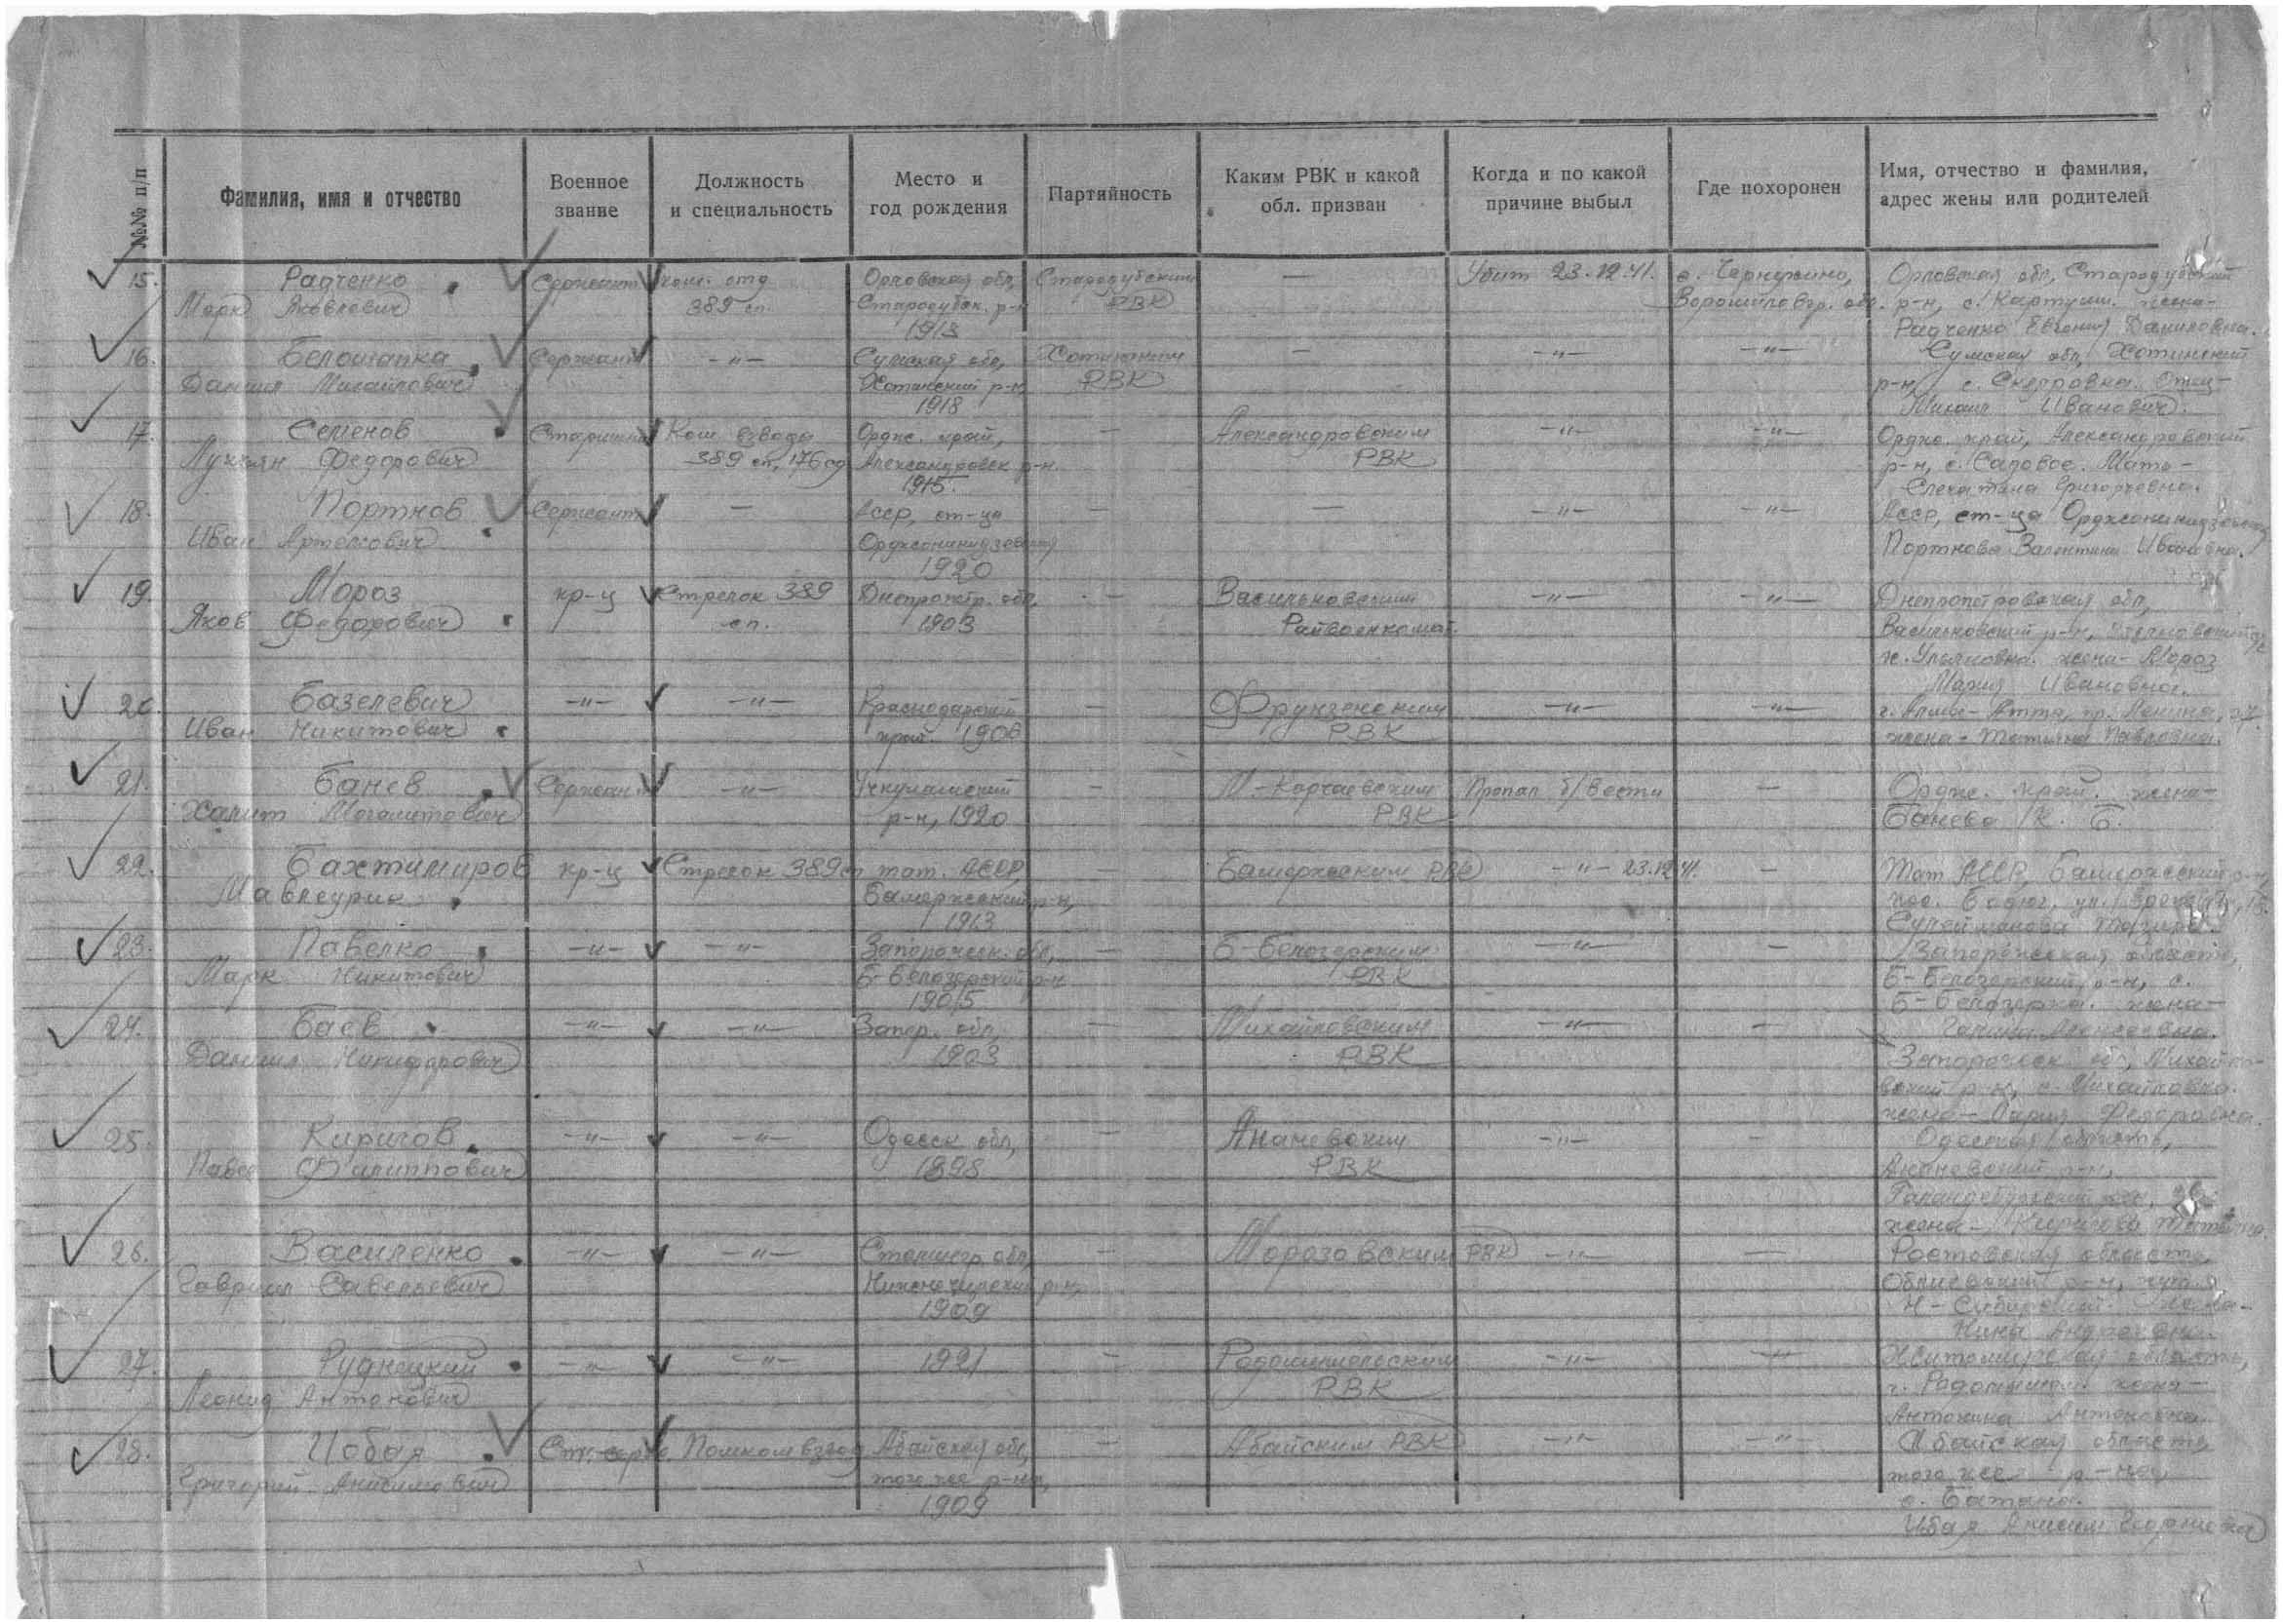 №№ п/п
Фамилия, имя и отчество
Военное звание
Должность и специальность
Место и год рождения
Партийность
Каким РВК и какой обл. призван
Когда и по какой причине выбыл
Где похоронен
Имя, отчество и фамилия, адрес жены или родителей
15. Радченко Сержант ком. отд. Орловская обл, Стародубским — Убит 23.12.41. Орловская обл, Стародубский
Марк Яковлевич 389 сп. Стародубск. р-н РВК Ворошиловгр. обл. р-н, с. Картуши. жена-
1913 Радченко Евгения Даниловна.
16. Белошапка Сержант —"— Сумская обл, Хотинским — —"— —"— Сумская обл, Хотинский
Даниил Михайлович Хотинский р-н, РВК р-н, с. отец-
1918 Михаил Иванович.
17. Семенов Старшина Ком. взвода Ордж. край, — Александровским —"— —"— Ордж. край, Александровский
Лукьян Федорович 389 сп, 176 сд Александровск р-н. РВК р-н, с. Садовое. Мать-
1915. Григорьевна.
18. Портнов Сержант — АССР, ст-ца — — —"— —"— АССР, ст-ца Орджоникидзевская
Иван Артемович Орджоникидзевская Портнова Валентина Ивановна.
1920
19. Мороз кр-ц Стрелок 389 Днепропетр. обл. — Васильковским —"— —"— Днепропетровская обл,
Яков Федорович сп. 1903 Райвоенкомат. Васильковский р-н,
жена- Мороз
Мария Ивановна.
20. Базелевич —"— —"— Краснодарский — Фрунзенским —"— —"— г. Алма-Атта, пр. Ленина, 27.
Иван Никитович край. 1906 РВК жена- Татьяна Павловна.
21. Банев Сержант —"— Учкуланский — М-Карчаевским Пропал б/вести — Ордж. край. жена-
Халит р-н, 1920 РВК Банева К. Б.
22. Бахтимиров кр-ц Стрелок 389 сп тат. АССР, — РВК —"— 23.12.41. — Тат АССР,
р-н,
1913 Сулейманова
23. Павелко —"— —"— Запорожск. обл, — Б-Белозерским —"— — Запорожская область,
Марк Никитович Б-Белозерский р-н РВК Б-Белозерский р-н, с.
1905 Б-Белозерка. жена-
Галина Алексеевна.
24. Баев —"— —"— Запор. обл, — Михайловским —"— — Запорожск обл, Михайло-
Даниил Никифорович 1903 РВК вский р-н, с. Михайловка.
жена- Федоровна.
25. Киригов —"— —"— Одесск обл, — Ананевским —"— — Одесская область,
Павел Филиппович 1898 РВК Ананевский р-н,
жена-
26. Василенко —"— —"— Сталингр. обл, — Морозовским РВК —"— — Ростовская область,
Гавриил Савельевич Нижнечирский р-н, Обливский р-н, хутор
1909 Н-Сибирский. жена-
Нина Андреевна.
27. Рудницкий —"— —"— 1921 — Радомышльским —"— —"— Житомирская область,
Леонид Антонович РВК г. Радомышль. жена-
Антонина Антоновна.
28. Цобая Ст. серж. Помкомвзвод Абайская обл, — Абайским РВК —"— —"— Абайская область
Григорий Анисимович того же р-на, того же р-на,
1909 Анисим